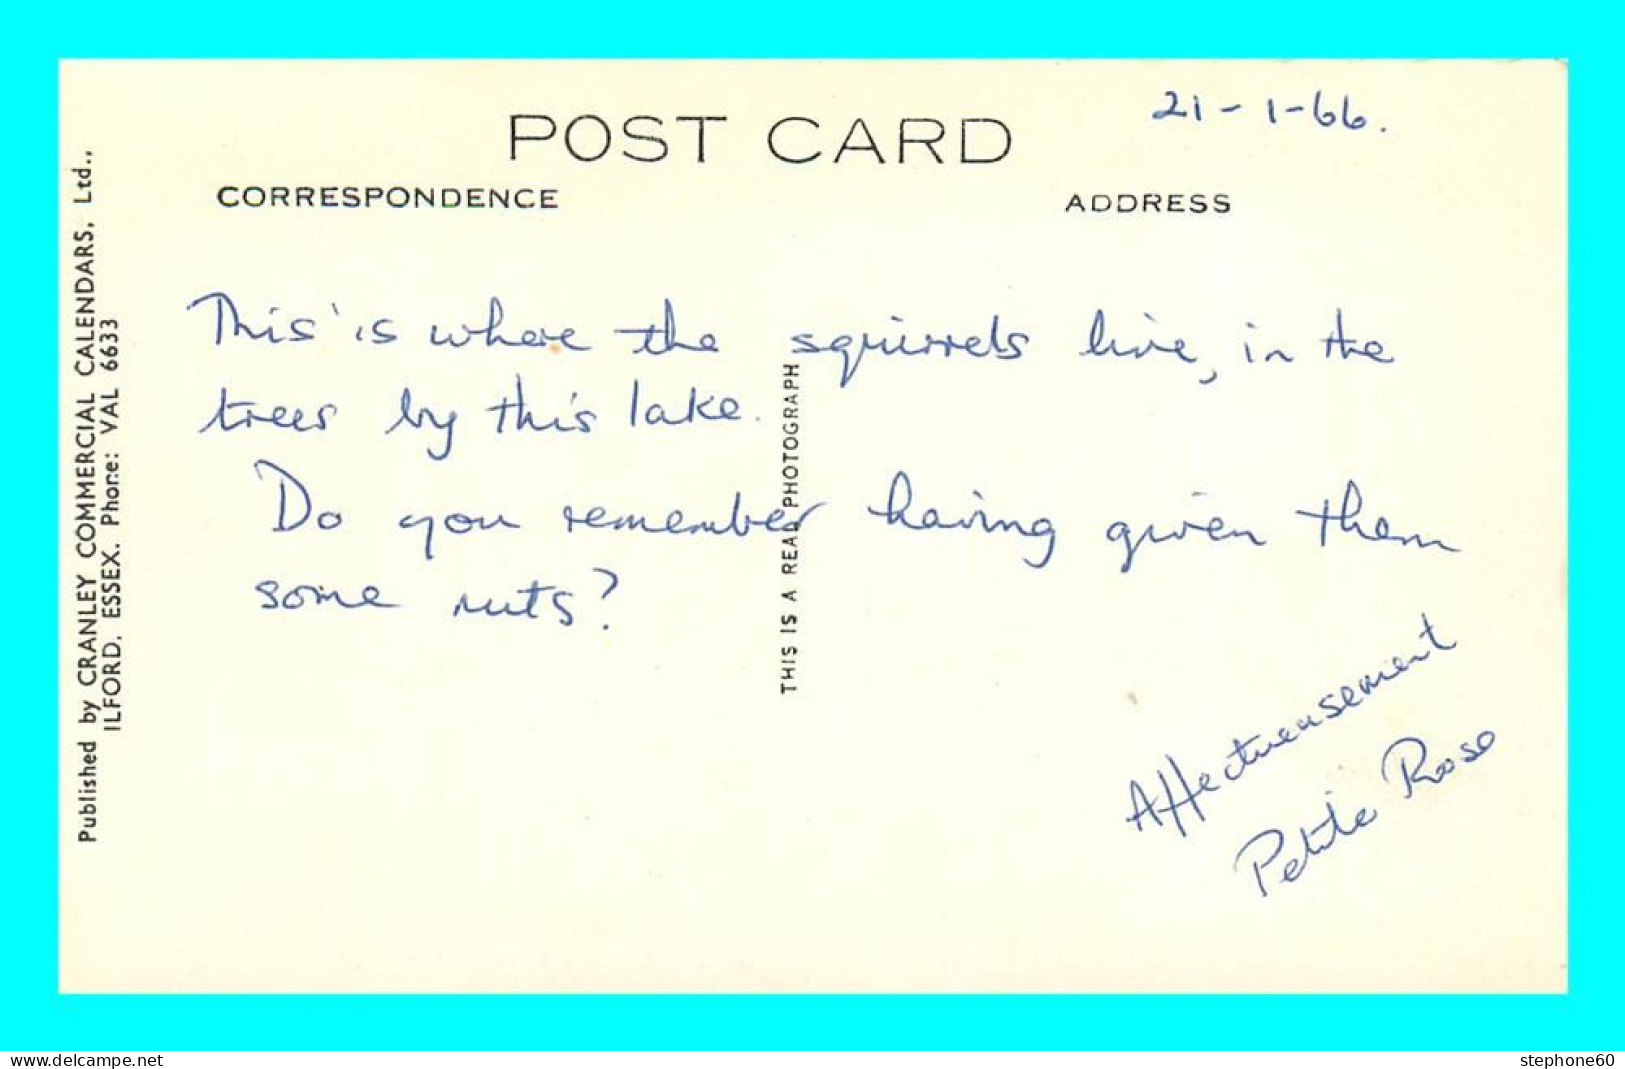 21-1-66.
POST CARD
CORRESPONDENCE
ADDRESS
This is where the squirrels live, in the
trees by this lake.
Do you remember having given them
some nuts?
Affectueusement
Petite Rose
Published by CRANLEY COMMERCIAL CALENDARS, Ltd.,
ILFORD. ESSEX. Phone: VAL 6633
THIS IS A REAL PHOTOGRAPH
www.delcampe.net
stephone60